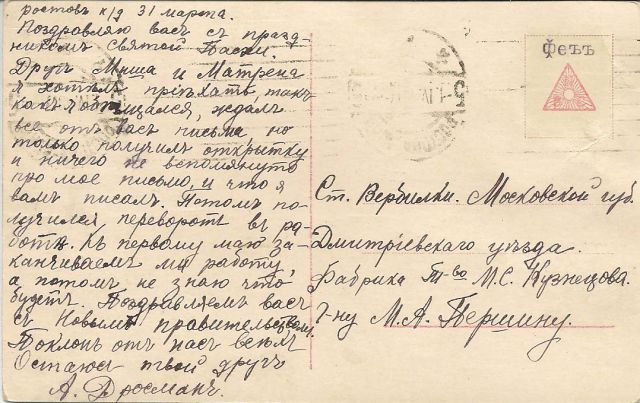 Ростовъ н/д 31 марта.
Поздравляю васъ съ празд-
никомъ Святой Пасхи.
Другъ Миша и Матрена
я хотѣлъ пріѣхать, такъ
какъ я обѣщался, ждалъ
все отъ васъ письма но
только получилъ открытку
и ничего не вспомянуто
про мое письмо, и что я
вамъ писалъ. Потомъ по-
лучился переворотъ въ ра-
ботѣ. Къ первому маю за-
канчиваемъ мы работу,
а потомъ не знаю что
будетъ. Поздравляемъ васъ
съ Новымъ правительствомъ.
Поклонъ отъ насъ всѣхъ
Остаюсь твой другъ
А. Дросманъ.
Феѣѣ
Ст. Вербилки. Московской губ.
Дмитріевскаго уѣзда.
Фабрика Т-во М.С. Кузнецова.
Г-ну М.А. Першину.